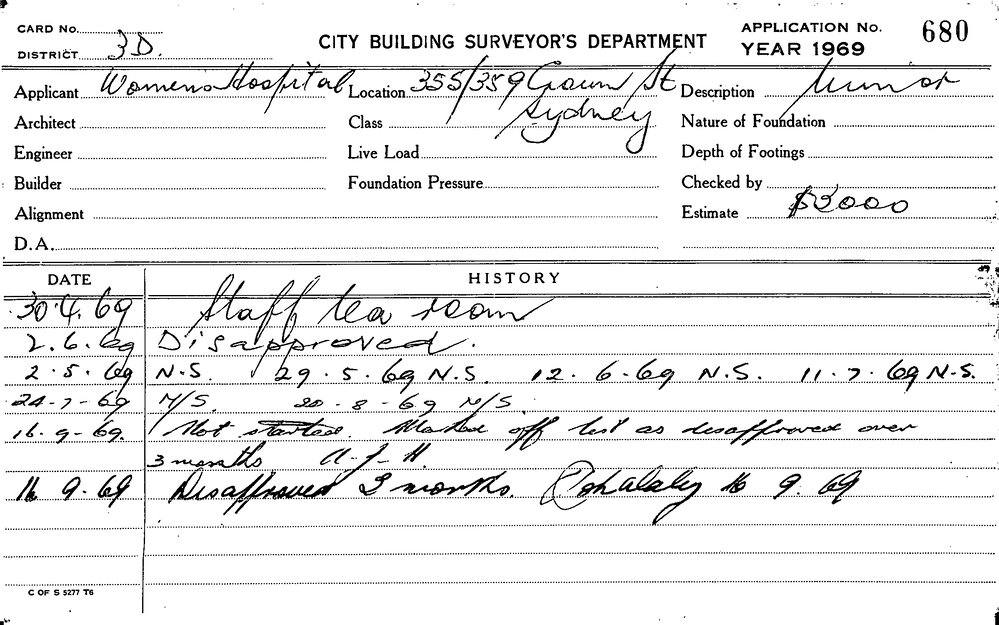 CARD No.
DISTRICT 3D.
CITY BUILDING SURVEYOR'S DEPARTMENT
APPLICATION No. 680
YEAR 1969
Applicant Womens Hospital Location 355/359 Crown St Description Minor
Architect Class Sydney Nature of Foundation
Engineer Live Load Depth of Footings
Builder Foundation Pressure Checked by
Alignment Estimate $3000
D.A.
DATE HISTORY
30.4.69 Staff tea room
2.6.69 Disapproved.
2.5.69 N.S. 29.5.69 N.S. 12.6.69 N.S. 11.7.69 N.S.
24-7-69 N/S. 20-8-69 N/S.
16.9-69. Not started. Marked off list as disapproved over
3 months A.J.H.
16 9.69 Disapproved 3 months. 16 9.69
C OF S 5277 T6